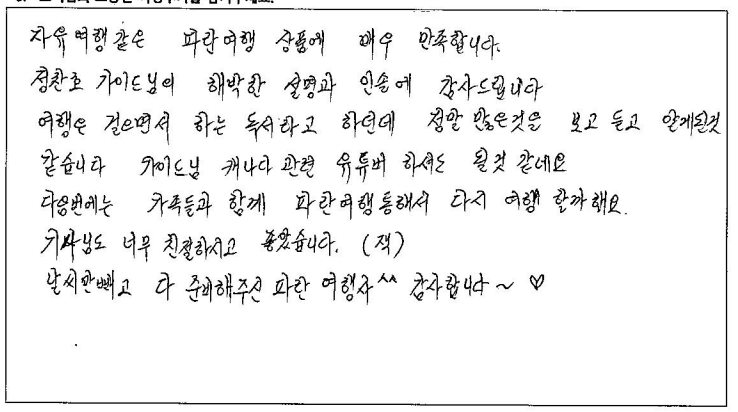 자유여행같은 파란여행 상품에 매우 만족합니다.
정찬호 가이드님의 해박한 설명과 인솔에 감사드립니다
여행은 걸으면서 하는 독서라고 하던데 정말 많은것을 보고 듣고 알게된것
같습니다 가이드님 캐나다 관련 유튜버 하셔도 될것 같네요
다음번에는 가족들과 함께 파란여행통해서 다시 여행 할까해요.
기사님도 너무 친절하시고 좋았습니다. (잭)
날씨만빼고 다 준비해주신 파란 여행사^^ 감사합니다~ ♡